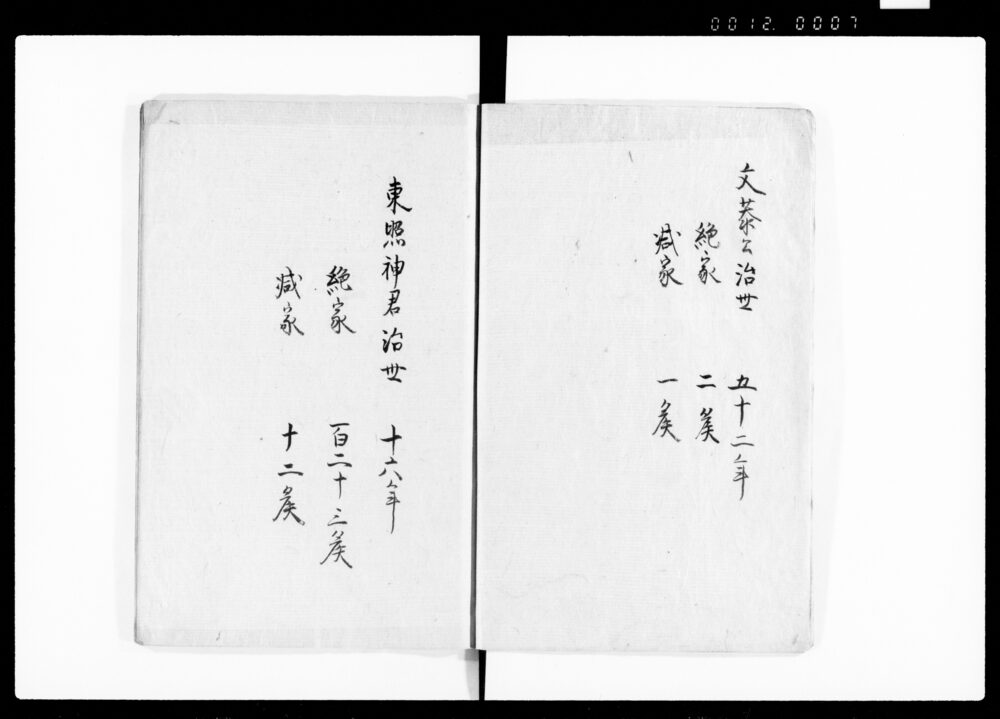 0012. 0007
文恭公治世 五十二年
絶家 二矦
減家 一矦
東照神君治世 十六年
絶家 百二十三矦
減家 十二矦